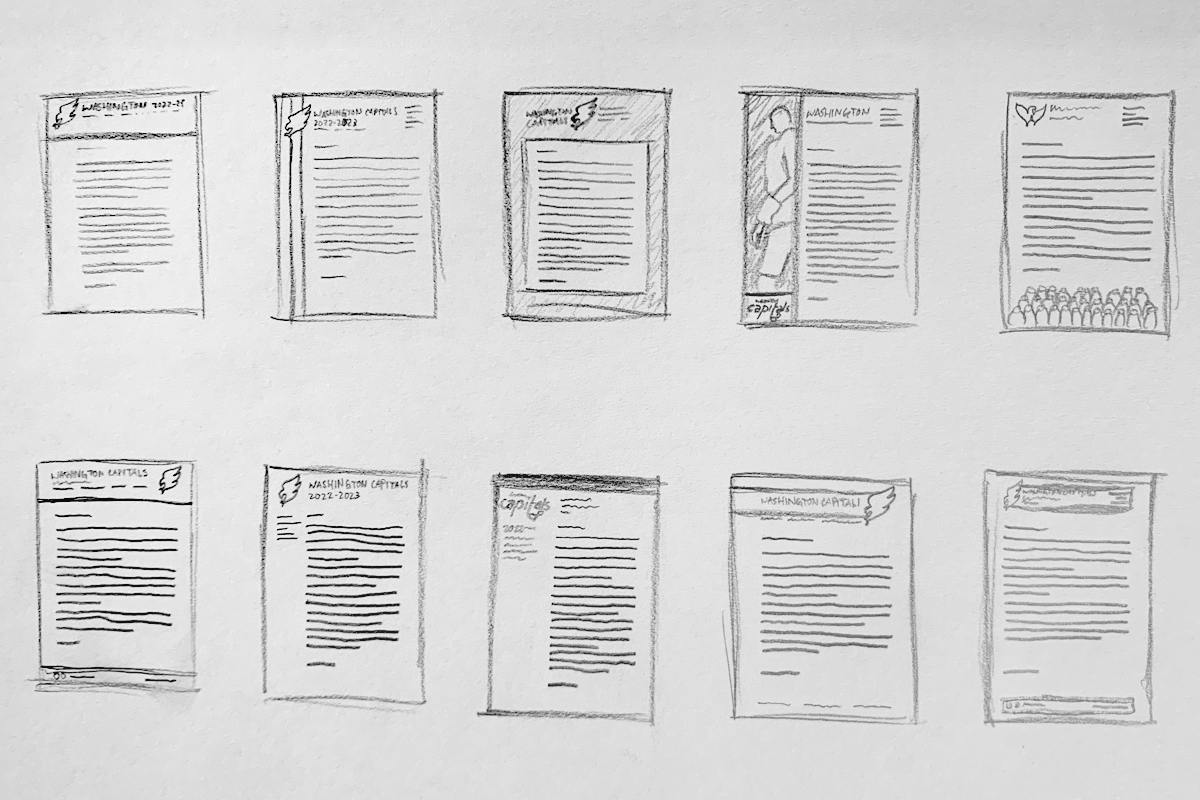 WASHINGTON 2022-23
WASHINGTON CAPITALS
2022-2023
WASHINGTON
CAPITALS
WASHINGTON
capitals
WASHINGTON CAPITALS
WASHINGTON CAPITALS
2022-2023
capitals
2022-
WASHINGTON CAPITALS
WASHINGTON CAPITALS